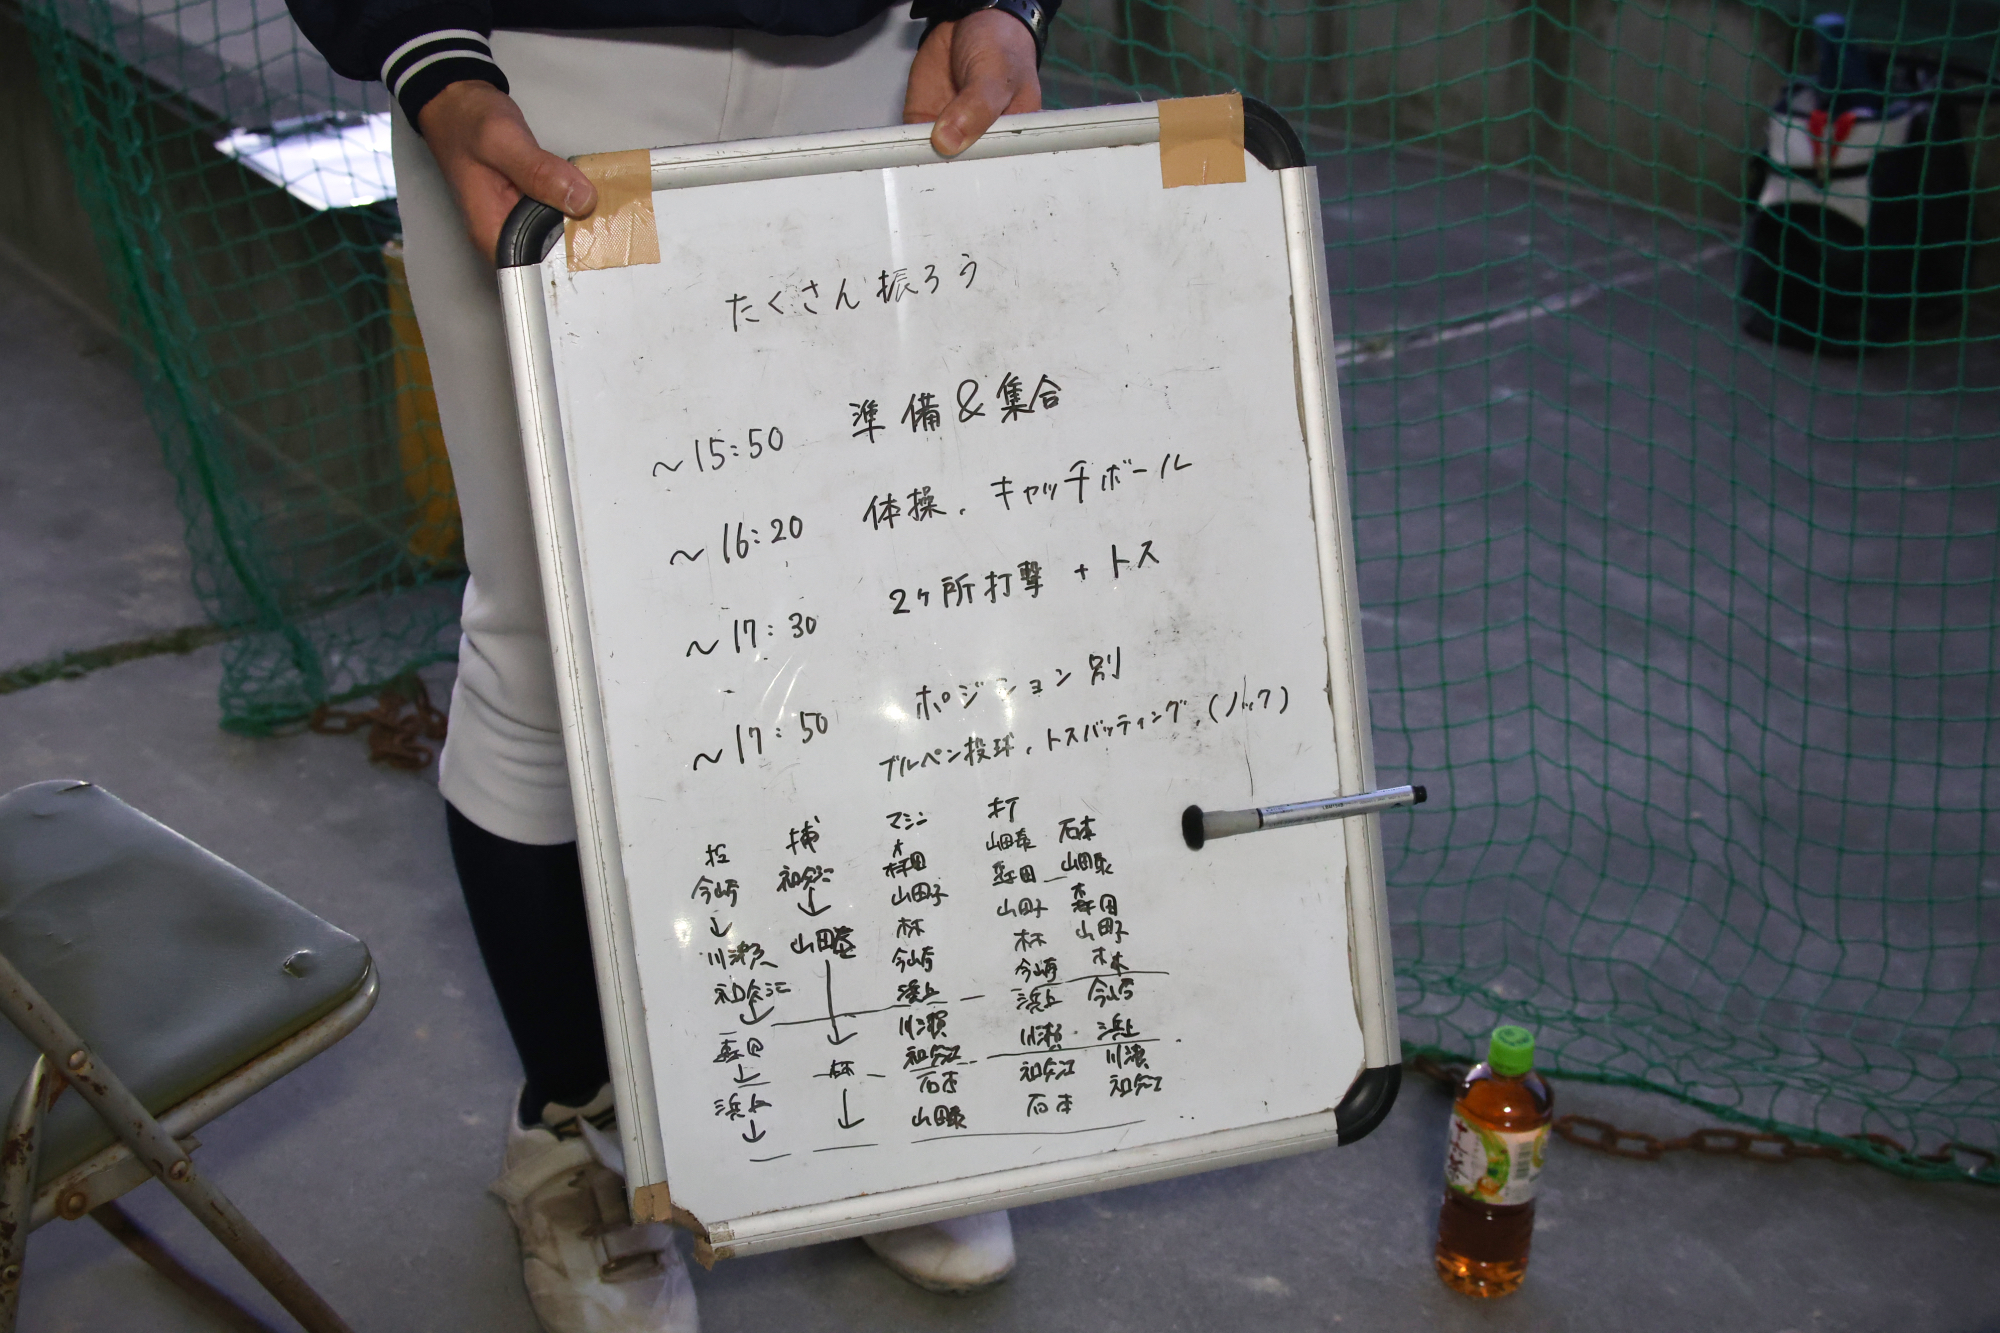 たくさん振ろう
~15:50 準備&集合
~16:20 体操、キャッチボール
~17:30 2ヶ所打撃 + トス
~17:50 ポジション別
ブルペン投球、トスバッティング、(ノック)
投 捕 マシン 打
今崎 和久江 森田 山田泰 石本
↓ ↓ 山田子 森田 山田泰
川瀬 山田泰 林 山田子 森田
和久江 今崎 林 山田子
↓ ↓ 浜上 今崎 林
森田 林 川瀬 浜上 今崎
↓ ↓ 和久江 川瀬 浜上
浜上 石本 和久江 川瀬
↓ 山田泰 石本 和久江